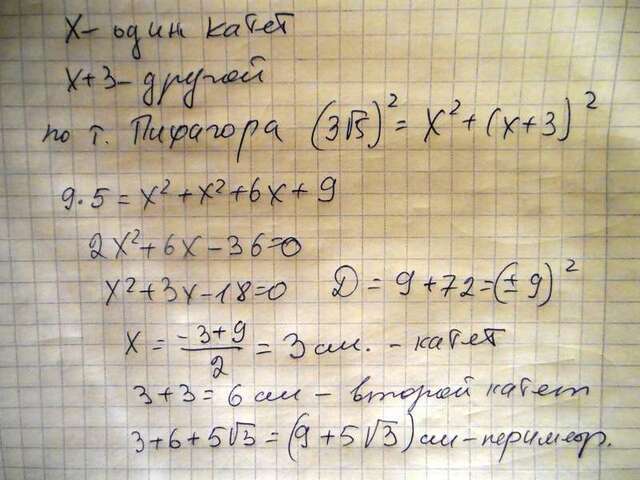 x - один катет
x+3 - другой
по т. Пифагора (3√5)² = x² + (x+3)²
9·5 = x² + x² + 6x + 9
2x² + 6x - 36 = 0
x² + 3x - 18 = 0 D = 9 + 72 = (±9)²
x = (-3+9)/2 = 3 см. - катет
3+3 = 6 см - второй катет
3+6+5√3 = (9+5√3) см - периметр.